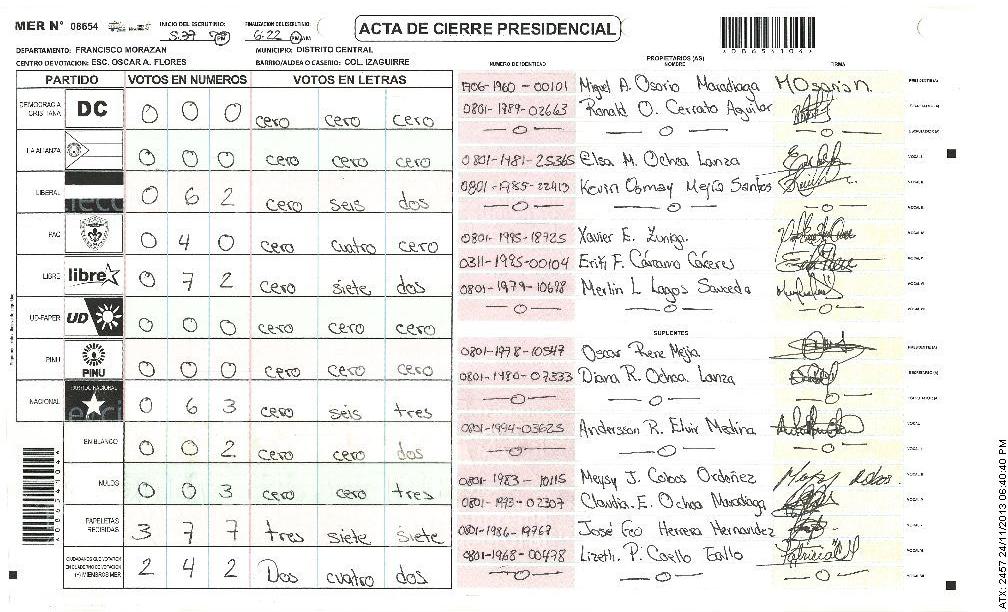 MER N° 08654 INICIO DEL ESCRUTINIO: 5:27 PM FINALIZACION DEL ESCRUTINIO: 6:22 PM
ACTA DE CIERRE PRESIDENCIAL
DEPARTAMENTO: FRANCISCO MORAZAN MUNICIPIO: DISTRITO CENTRAL
CENTRO DE VOTACION: ESC. OSCAR A. FLORES BARRIO/ALDEA O CASERIO: COL. IZAGUIRRE
PARTIDO VOTOS EN NUMEROS VOTOS EN LETRAS
DEMOCRACIA CRISTIANA DC 0 0 0 cero cero cero
LA ALIANZA 0 0 0 cero cero cero
LIBERAL 0 6 2 cero seis dos
PAC 0 4 0 cero cuatro cero
LIBRE libre 0 7 2 cero siete dos
UD-FAPER UD 0 0 0 cero cero cero
PINU PINU 0 0 0 cero cero cero
NACIONAL PARTIDO NACIONAL 0 6 3 cero seis tres
EN BLANCO 0 0 2 cero cero dos
NULOS 0 0 3 cero cero tres
PAPELETAS RECIBIDAS 3 7 7 tres siete siete
CIUDADANOS QUE VOTARON EN CUADERNO DE VOTACION (+) MIEMBROS MER 2 4 2 Dos cuatro dos
PROPIETARIOS (AS)
NUMERO DE IDENTIDAD NOMBRE FIRMA
1706-1960-00101 Miguel A. Osorio Maradiaga
0801-1989-02663 Ronald O. Cerrato Aguilar
—0— —0— —0—
0801-1981-25365 Elsa M. Ochoa Lanza
0801-1985-22413 Kevin Osmay Mejía Santos
—0— —0— —0—
0801-1995-18925 Xavier E. Zuniga.
0311-1985-00104 Erik F. Cáceres
0801-1979-10698 Merlin L Lagos Sauceda
—0— —0— —0—
SUPLENTES
0801-1978-10547 Oscar Rene Mejia
0801-1980-07333 Diana R. Ochoa. Lanza
—0— —0— —0—
0801-1994-03625 Andersson R. Elvir Medina
—0— —0— —0—
0801-1983-10115 Meysy J. Cobos Ordoñez
0801-1993-02307 Claudia. E. Ochoa Maradiaga
0801-1986-19767 José Feo Herrera Hernandez
0801-1968-00478 Lizeth. P.
—0— —0— —0—
ATX: 2457 24/11/2013 06:40:40 PM